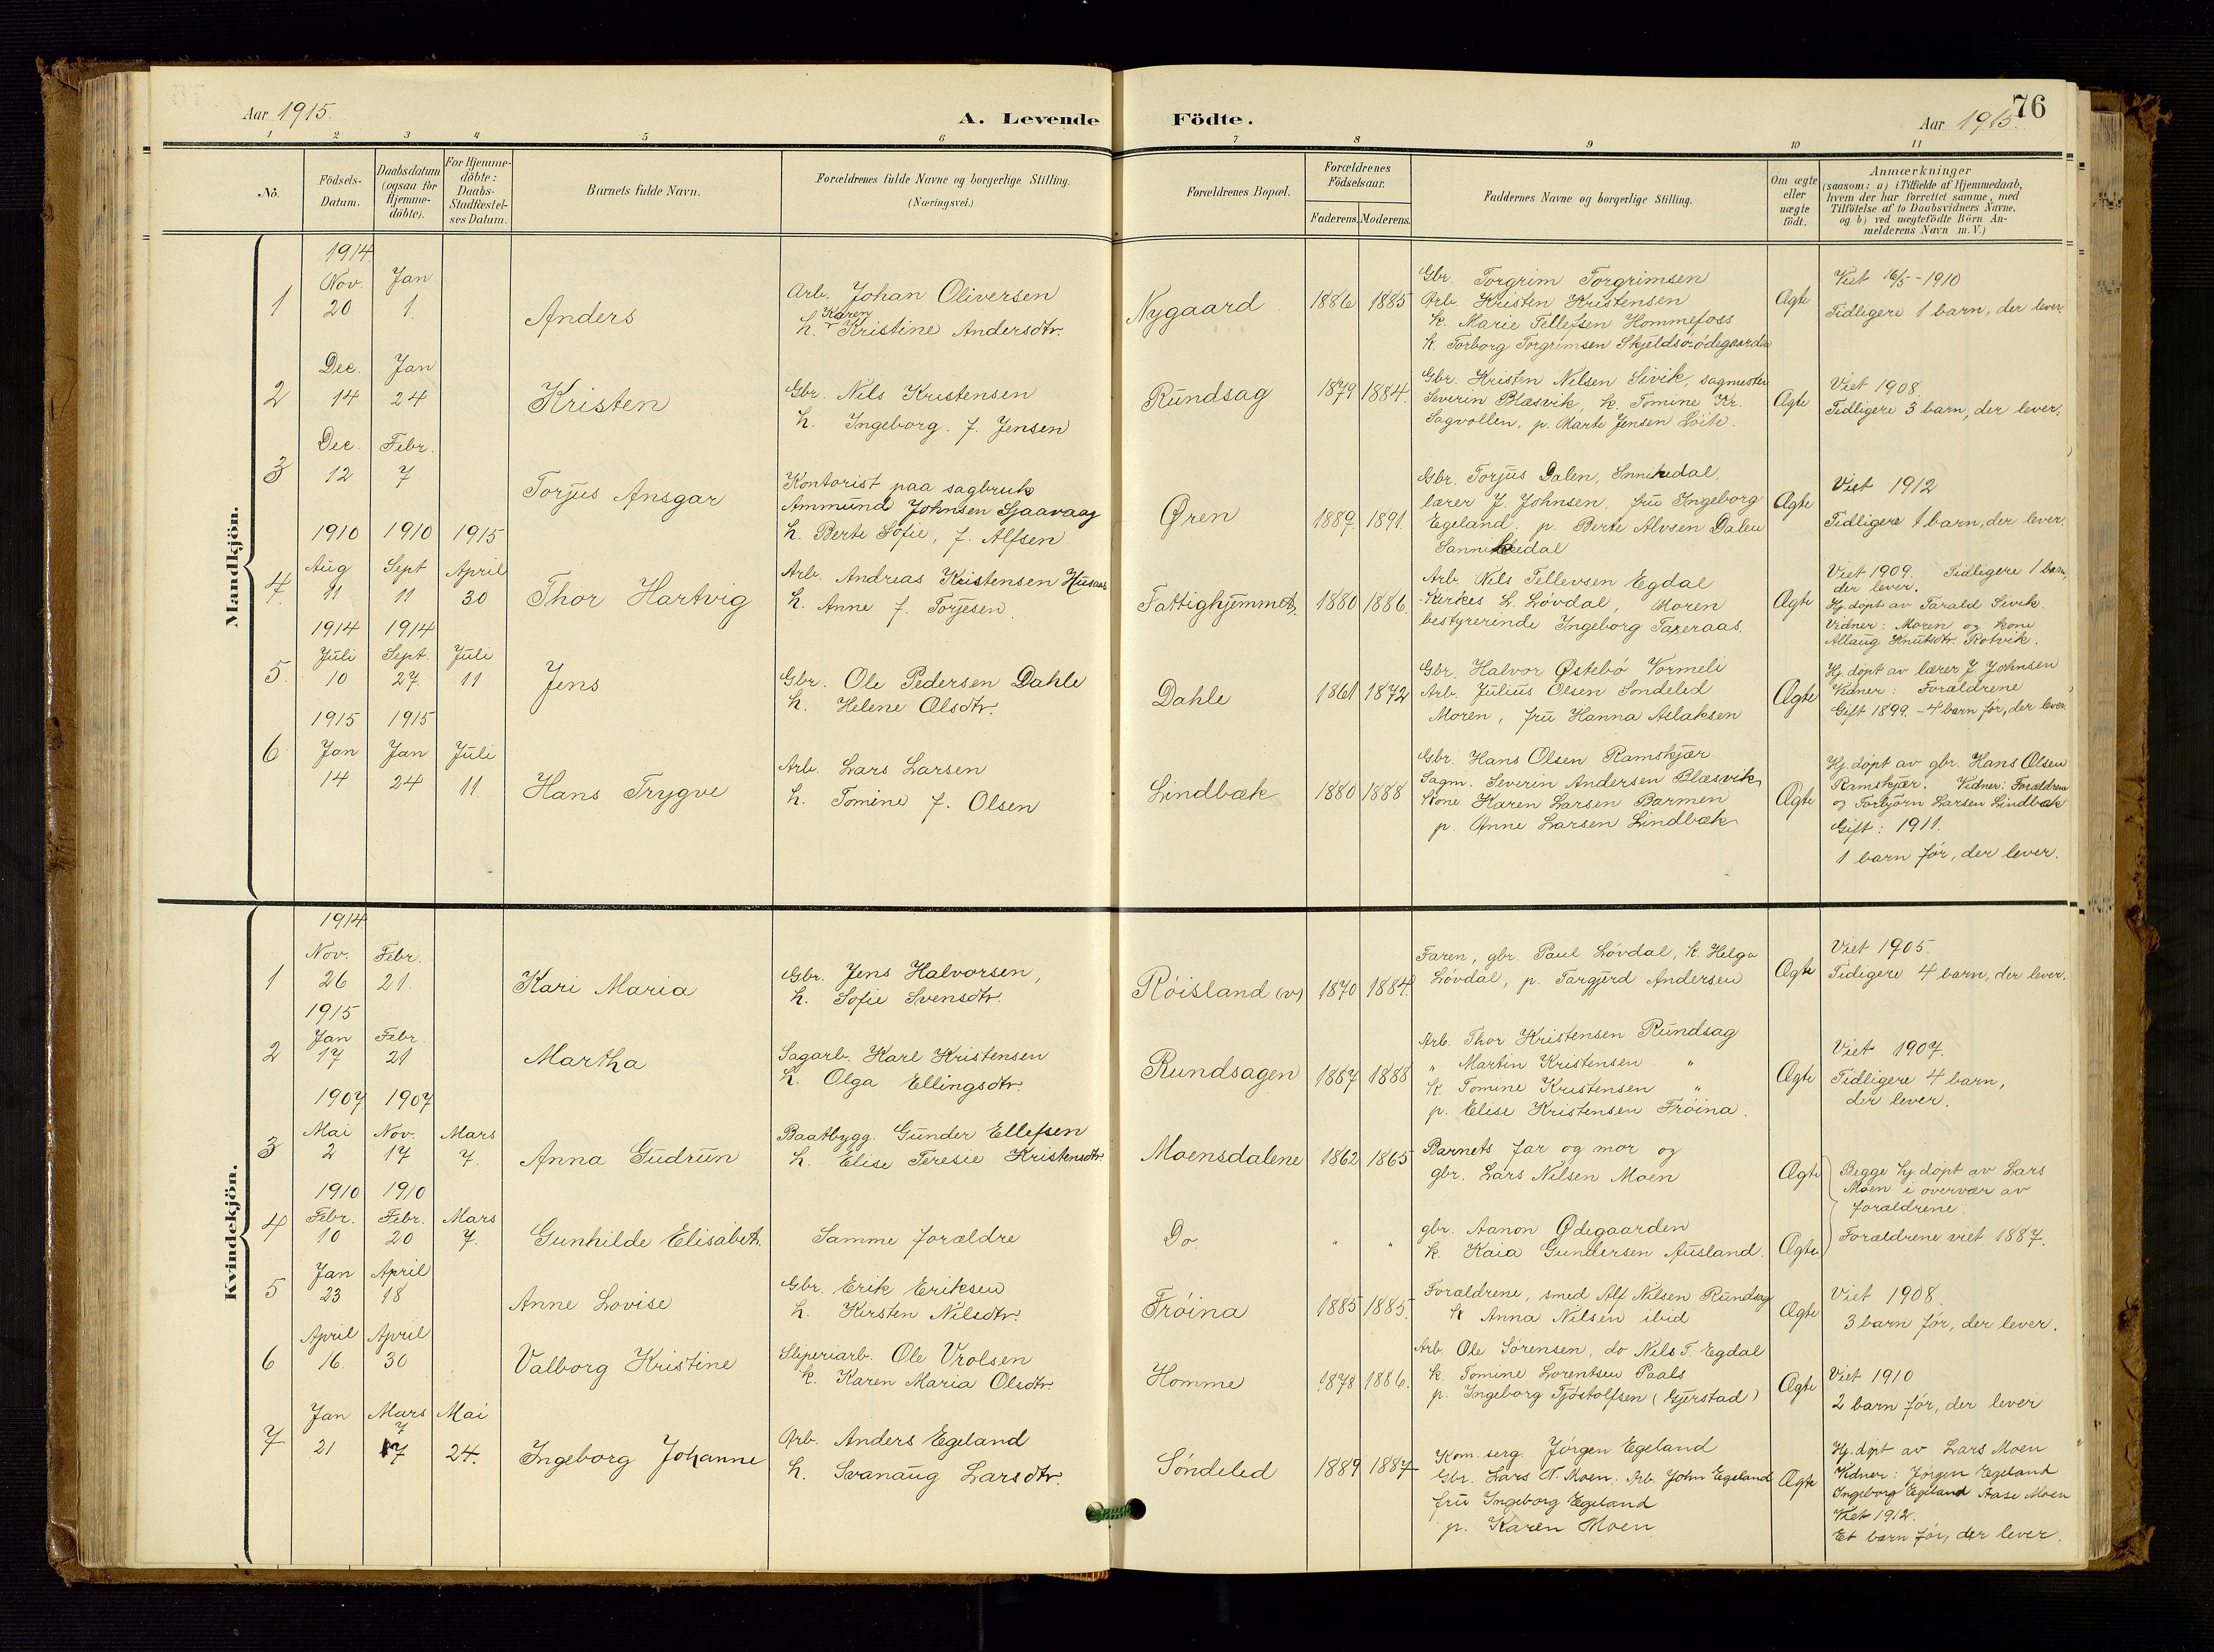 Aar 1915.
A. Levende Födte.
Aar 1915.
76
1 2 3 4 5 6 7 8 9 10 11
No.
Födsels-
Datum.
Daabsdatum
(ogsaa for
Hjemme-
döbte).
For Hjemme-
döbte:
Daabs-
Stadfæstel-
ses Datum.
Barnets fulde Navn.
Forældrenes fulde Navne og borgerlige Stilling.
(Næringsvei.)
Forældrenes Bopæl.
Forældrenes
Födselsaar.
Faderens. Moderens.
Faddernes Navne og borgerlige Stilling.
Om ægte
eller
uægte
födt.
Anmærkninger
(saasom: a) i Tilfælde af Hjemmedaab,
hvem der har forrettet samme, med
Tilföielse af to Daabsvidners Navne,
og b) ved uægtefödte Börn An-
melderens Navn m. V.)
Mandkjön.
1
1914
Nov.
20
Jan
1.
Anders
Arb. Johan Oliversen
Karen
h. Kristine Andersdtr.
Nygaard
1886 1885
Gbr. Torgrim Torgrimsen
Arb. Kristen Kristensen
k. Marie Tellefsen Hommefoss
k. Torborg Torgrimsen Skjeldsö-ödegaarden
Ægte
Viet 16/5-1910
Tidligere 1 barn, der lever.
2
Dec.
14
Jan
24
Kristen
Gbr. Nils Kristensen
h. Ingeborg. f. Jensen
Rundsag
1879 1884.
Gbr. Kristen Nilsen Sivik, sagmester
Severin Blæsvik, k. Tomine Kr.
Sagvollen, p. Marte Jensen Löite.
Ægte
Viet 1908.
Tidligere 3 barn, der lever.
3
Dec.
12
Febr.
7
Torjus Ansgar
Kontorist paa sagbruk
Ammund Johnsen Sjaavaag
h. Berte Sofie, f. Alfsen
Øren
1887. 1891.
Gbr. Torjus Dalen, Snnikedal,
lærer J. Johnsen, fru Ingeborg
Egeland. p. Berte Alvsen Dalen
Sannikedal
Ægte
Viet 1912
Tidligere 1 barn, der lever.
4.
1910
Aug
11
1910
Sept
11
1915
April
30
Thor Hartvig
Arb. Andreas Kristensen Husaas
h. Anne f. Torjesen
Fattighjemmet
1880 1886.
Arb. Nils Tellevsen Egdal
Kirkes. L. Lövdal, Moren
bestyrerinde Ingeborg Taxeraas.
Ægte
Viet 1909. Tidligere 1 barn,
der lever.
Hj. döpt av Tarald Sivik.
Vidner: Moren og kone
Allaug Knutsdtr. Rotvik.
5.
1914
Juli
10
1914
Sept.
27
Juli
11
Jens
Gbr. Ole Pedersen Dahle
h. Helene Olsdtr.
Dahle
1861 1872
Gbr. Halvor Østebö Vormeli
Arb. Julius Olsen Sondeled
Moren, fru Hanna Aslaksen
Ægte
Hj. döpt av lærer J. Johnsen
Vidner: Forældrene
Gift 1899. - 4 barn för, der lever.
6
1915
Jan
14
1915
Jan
24
Juli
11.
Hans Trygve
Arb. Lars Larsen
h. Tomine f. Olsen
Lindbæk
1880 1888
Gbr. Hans Olsen Ramskjær
Sagm. Severin Andersen Blæsvik,
Kone Karen Larsen Barmen
p. Anne Larsen Lindbæk
Ægte
Hj. döpt av gbr. Hans Olsen
Ramskjær. Vidner: Forældrene
og Torbjörn Larsen Lindbæk
Gift: 1911.
1 barn för, der lever.
Kvindekjön.
1
1914
Nov.
26
Febr.
21.
Kari Maria
Gbr. Jens Halvorsen,
h. Sofie Svensdtr.
Röisland (v)
1870 1884.
Faren, gbr. Paul Lövdal, k. Helga
Lövdal, p. Targjerd Andersen
Ægte
Viet 1905.
Tidigere 4 barn, der lever.
2
1915
Jan
17
Febr.
21
Martha
Sagarb. Karl Kristensen
h. Olga Ellingsdtr.
Rundsagen
1887 1888
Arb. Thor Kristensen Rundsag
" Martin Kristensen "
k. Tomine Kristensen "
p. Elise Kristensen Fröina.
Ægte
Viet 1907.
Tidligere 4 barn,
der lever.
3
1907
Mai
2
1907
Nov.
17
Mars
7.
Anna Gudrun
Baatbygg. Gunder Ellefsen
h. Elise Teresie Kristensdtr.
Moensdalene
1862 1865
Barnets far og mor og
gbr. Lars Nilsen Moen
Ægte
Begge hj. döpt av Lars
Moen i overvær av
forældrene.
Forældrene viet 1887.
4
1910
Febr.
10
1910
Febr.
20
Mars
7.
Gunhilde Elisabeth.
Samme forældre
Do.
" "
gbr. Aanon Ødegaarden
k. Kaia Gundersen Ausland.
Ægte
5
Jan
23
April
18
Anne Lovise
Gbr. Erik Eriksen
h. Kirsten Nilsdtr.
Fröina
1885 1885.
Forældrene, smed Alf Nilsen Rundsag
k Anna Nilsen ibid
Ægte
Viet 1908.
3 barn för, der lever.
6
April
16.
April
30
Valborg Kristine
Sliperiarb. Ole Vrolsen
k. Karen Maria Olsdtr.
Homme
1878 1886.
Arb. Ole Sörensen, do Nils T. Egdal
k. Tomine Lorentsen Paals
p. Ingeborg Tjöstolfsen (Gjerstad)
Ægte
Viet 1910
2 barn för, der lever
7
Jan
21
Mars
7
17
Mai
24.
Ingeborg Johanne
Arb. Anders Egeland
h. Svanaug Larsdtr.
Söndeled
1889 1887
Kom. serg. Jörgen Egeland
Gbr. Lars N. Moen. Arb. John Egeland
fru Ingeborg Egeland
p. Karen Moen
Ægte
Hj. döpt av Lars Moen
Vidner: Jörgen Egeland
Ingeborg Egeland Aase Moen
Viet 1912.
Et barn för, der lever.